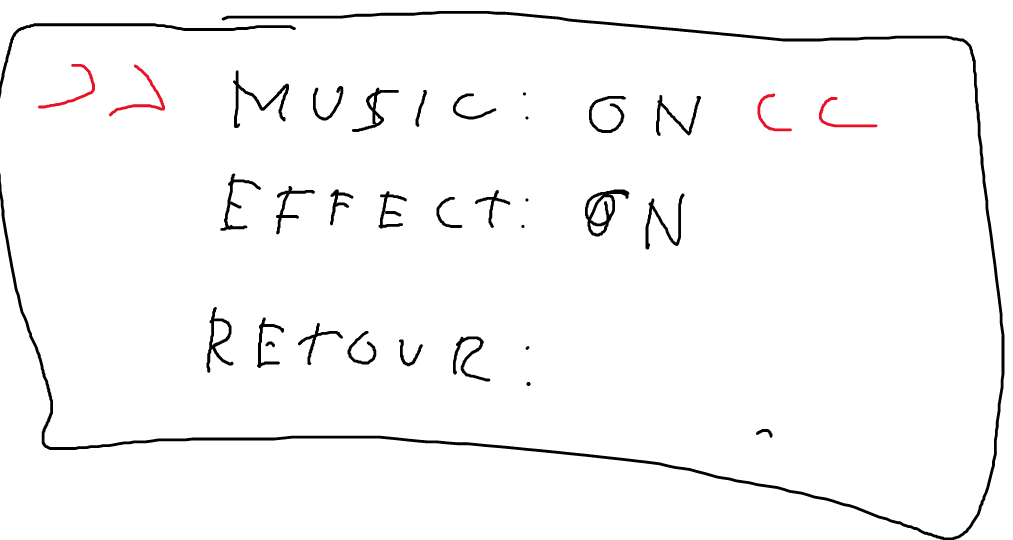 >> MUSIC: ON <<
EFFECT: ON
RETOUR: